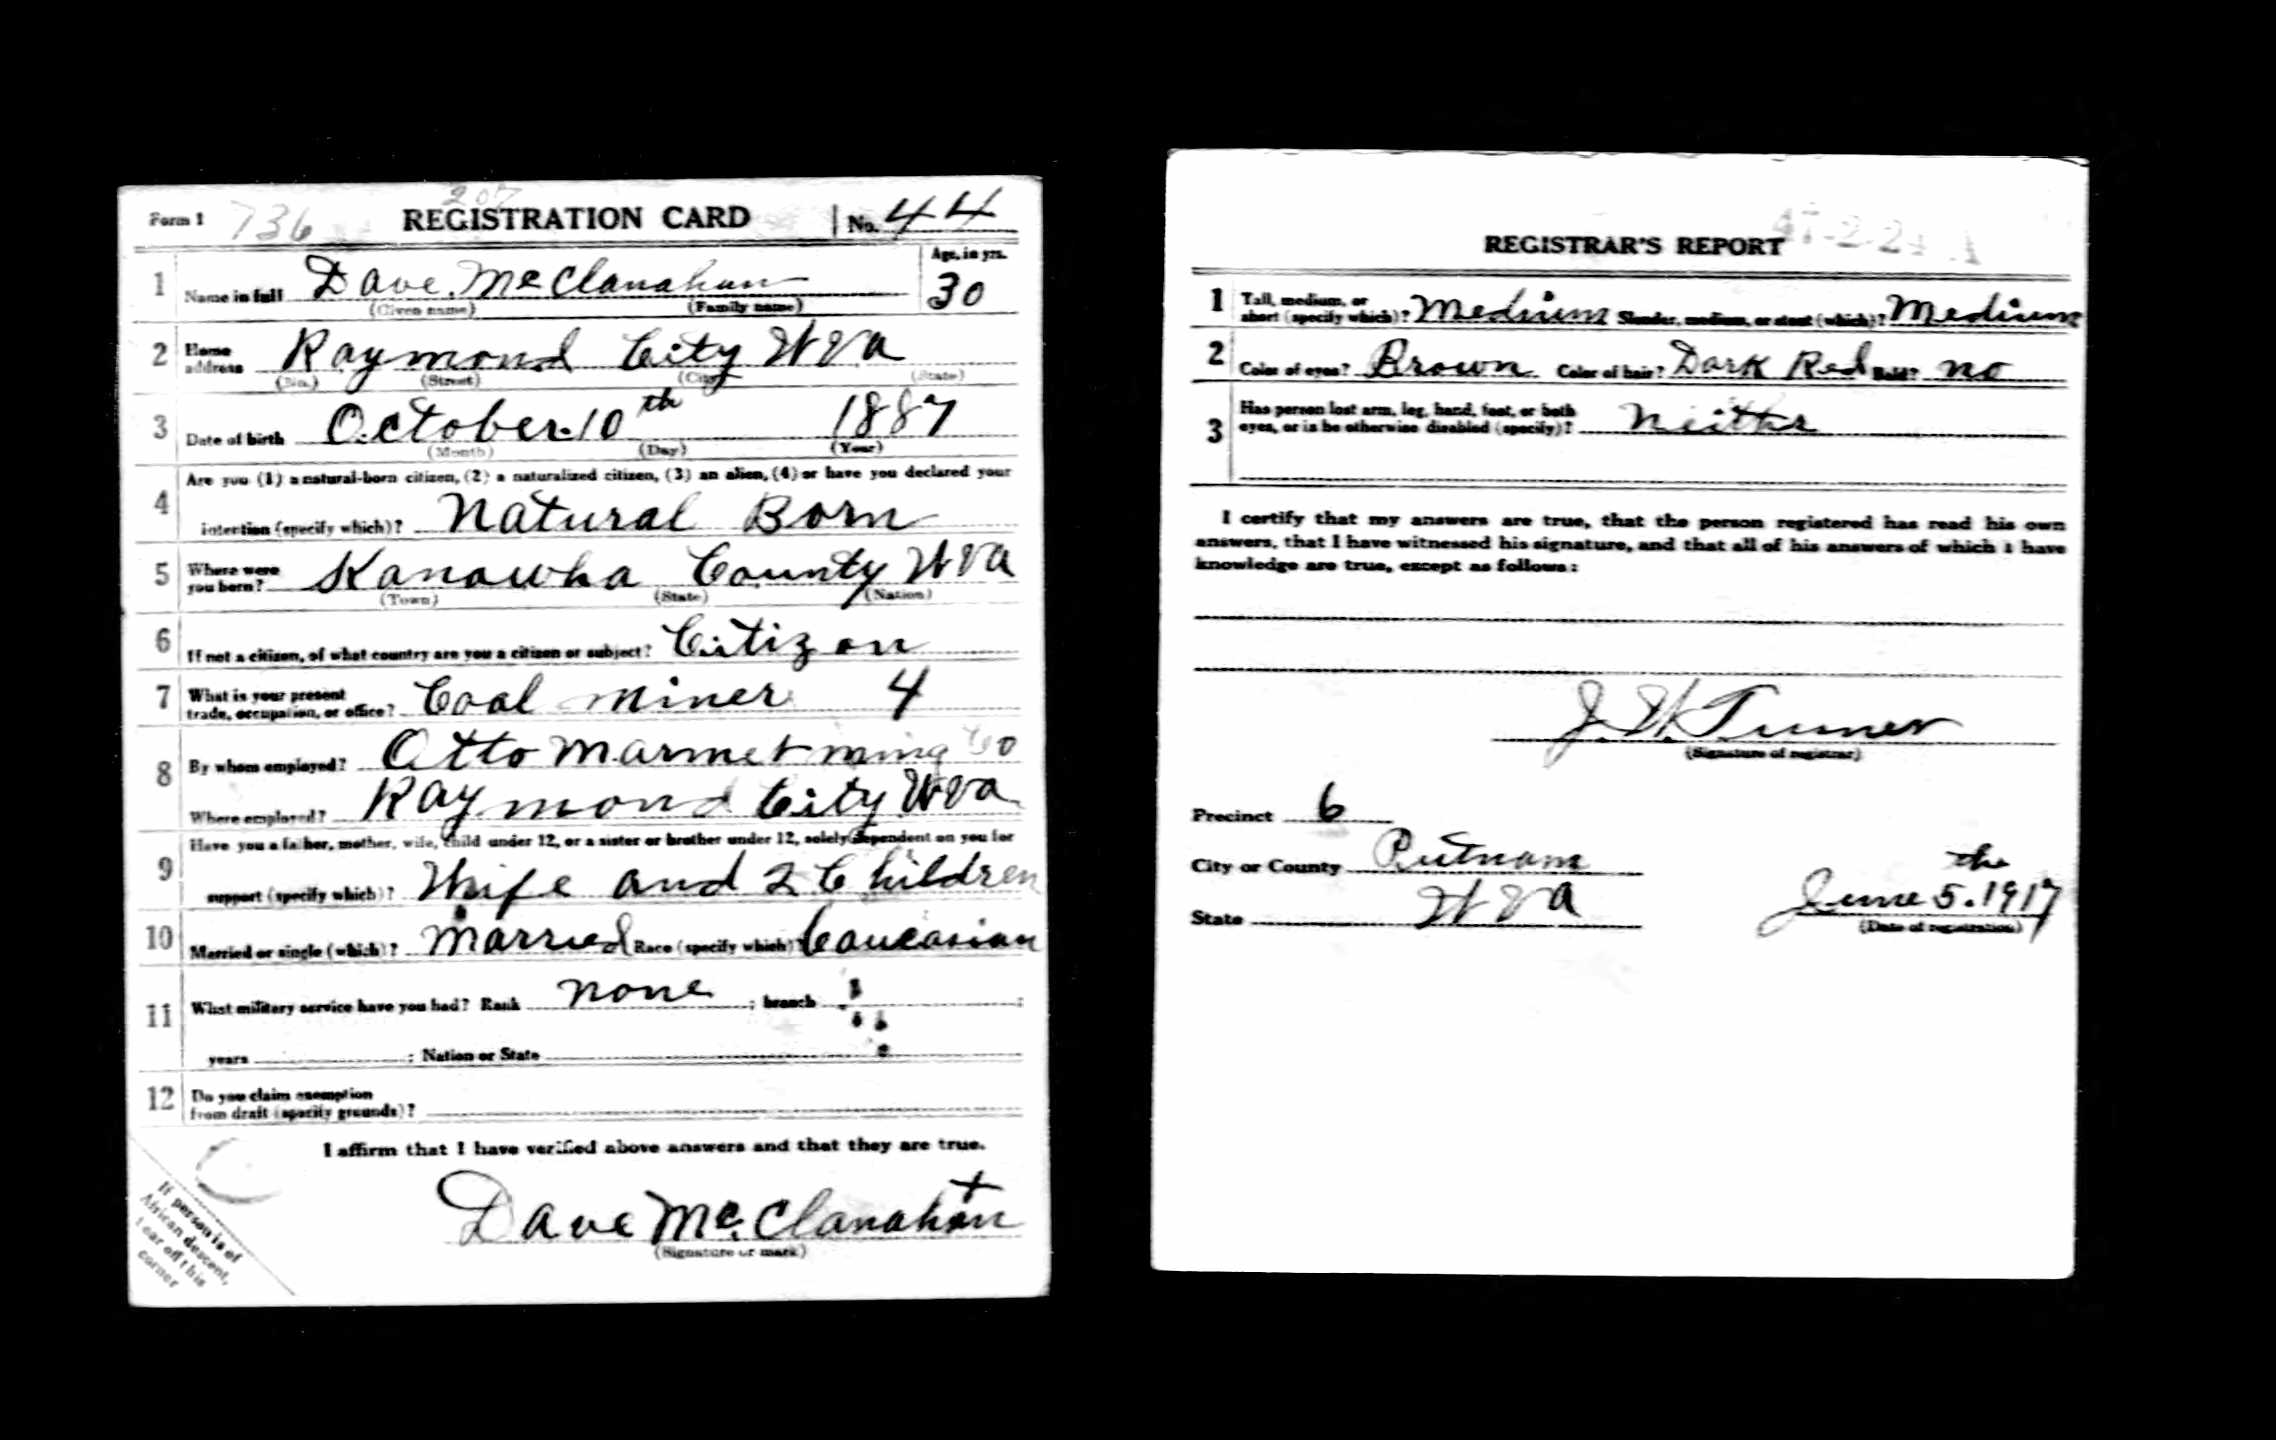 207
Form 1 736 REGISTRATION CARD No. 44
Age, in yrs.
1 Name in full Dave McClanahan 30
(Given name) (Family name)
2 Home address Raymond City W Va
(No.) (Street) (City) (State)
3 Date of birth October 10th 1887
(Month) (Day) (Year)
Are you (1) a natural-born citizen, (2) a naturalized citizen, (3) an alien, (4) or have you declared your
4 intention (specify which)? Natural Born
5 Where were you born? Kanawha County W Va
(Town) (State) (Nation)
6 If not a citizen, of what country are you a citizen or subject? Citizon
7 What is your present trade, occupation, or office? Coal Miner 4
8 By whom employed? Otto Marmet ming Co
Where employed? Raymond City W Va
Have you a father, mother, wife, child under 12, or a sister or brother under 12, solely dependent on you for
9 support (specify which)? Wife and 2 Children
10 Married or single (which)? Married Race (specify which)? Caucasian
11 What military service have you had? Rank none ; branch ;
years ; Nation or State
12 Do you claim exemption
from draft (specify grounds)?
I affirm that I have verified above answers and that they are true.
Dave McClanahan
(Signature or mark)
If person is of
African descent,
tear off this
corner
REGISTRAR'S REPORT
1 Tall, medium, or
short (specify which)? Medium Slender, medium, or stout (which)? Medium
2 Color of eyes? Brown Color of hair? Dark Red Bald? no
Has person lost arm, leg, hand, foot, or both
3 eyes, or is he otherwise disabled (specify)? Neithr
I certify that my answers are true, that the person registered has read his own
answers, that I have witnessed his signature, and that all of his answers of which I have
knowledge are true, except as follows:
J. W. Turner
(Signature of registrar)
Precinct 6
City or County Putnam
State W Va
June 5 the 1917
(Date of registration)